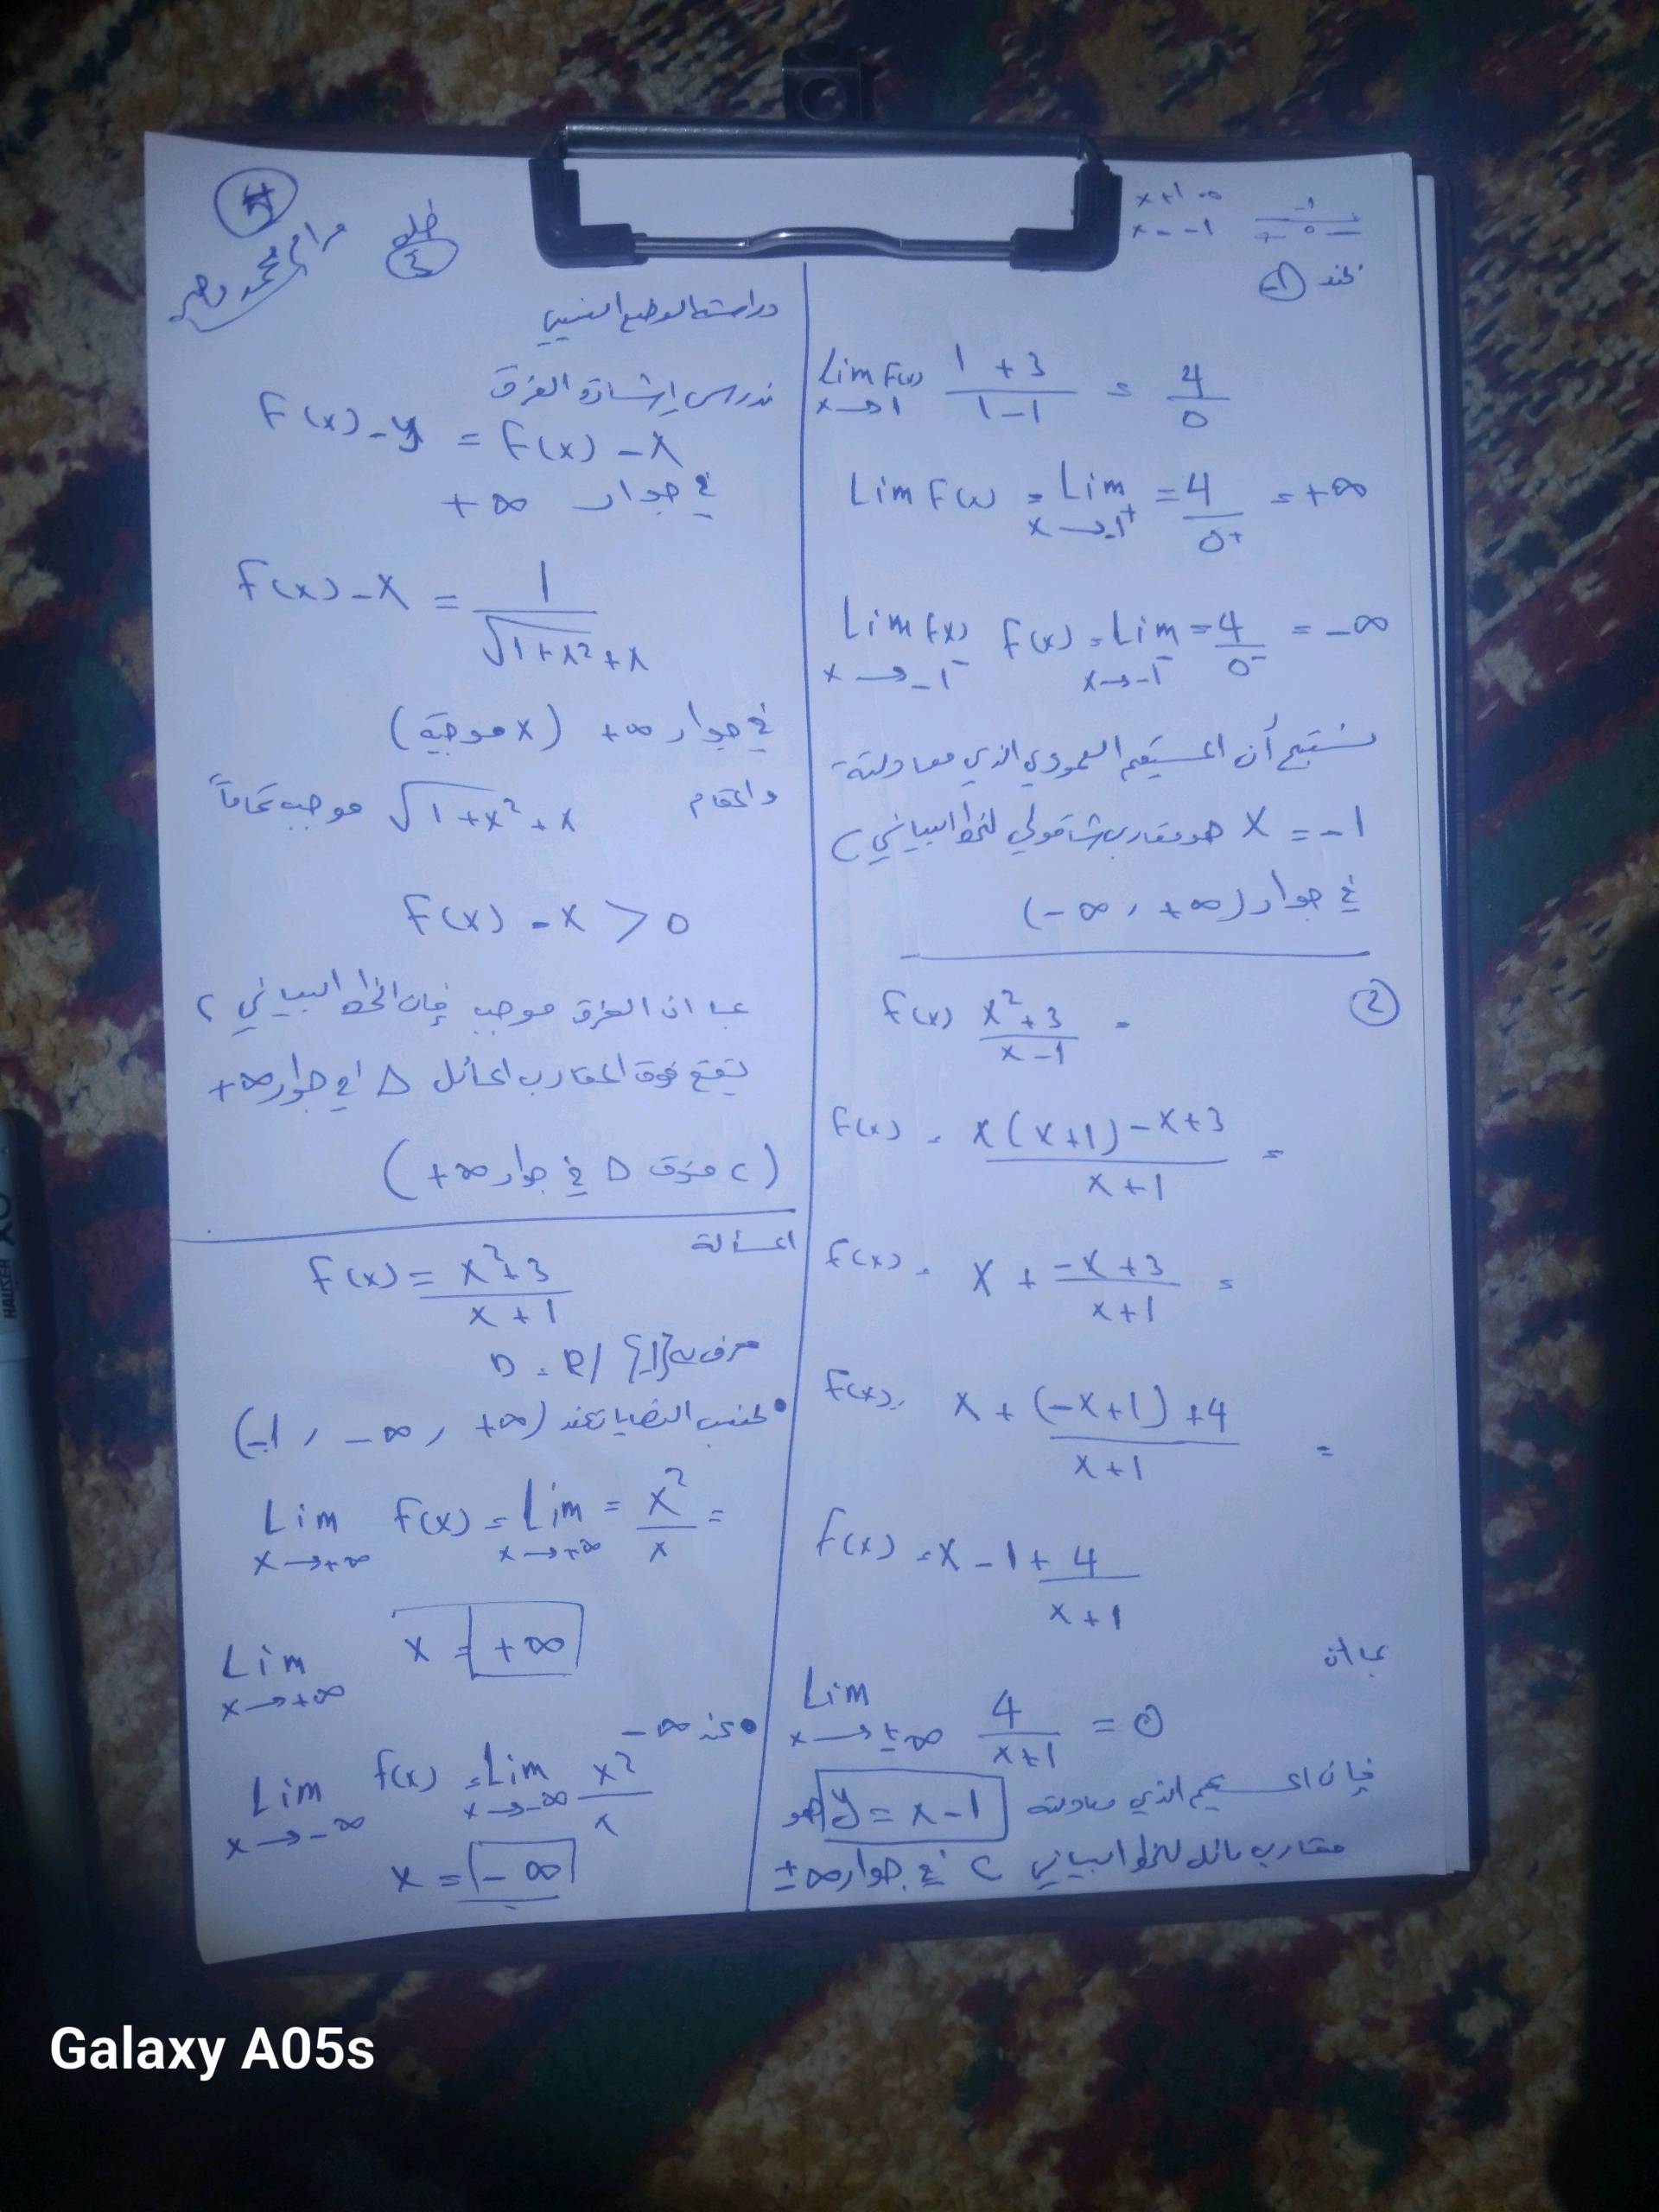 دراسة الوضع النسبي
ندرس إشارة الفرق
F(x) - y = F(x) - x
في جوار +∞
F(x) - x = 1 / √1+x² + x
في جوار +∞ (x موجبة)
والمقام √1+x² + x موجب تماماً
F(x) - x > 0
بما ان الفرق موجب فإن الخط البياني C
يقع فوق المقارب المائل Δ في جوار +∞
(C فوق Δ في جوار +∞)
المسألة
F(x) = x²+3 / x+1
معرف على D = R/ {-1}
• لحسب النهايات عند (-1, -∞, +∞)
Lim x→+∞ F(x) = Lim x→+∞ = x² / x =
Lim x→+∞ x = +∞
• عند -∞
Lim x→-∞ f(x) = Lim x→-∞ x² / x
x = -∞
x+1 = 0
x = -1
-1
+ 0 -
عند -1
Lim F(x) x→1 1+3 / 1-1 = 4 / 0
Lim F(x) = Lim x→-1⁺ = 4 / 0⁺ = +∞
Lim f(x) x→-1⁻ F(x) = Lim x→-1⁻ = 4 / 0⁻ = -∞
نستنتج أن المستقيم العمودي الذي معادلته
x = -1 هو مقارب شاقولي للخط البياني C
في جوار (-∞, +∞)
②
F(x) x²+3 / x-1 =
F(x) = x(x+1)-x+3 / x+1 =
F(x) = x + -x+3 / x+1 =
F(x) = x + (-x+1)+4 / x+1 =
F(x) = x - 1 + 4 / x+1
بما ان
Lim x→±∞ 4 / x+1 = 0
فإن المستقيم الذي معادلته y = x-1 هو
مقارب مائل للخط البياني C في جوار ±∞
HAUSER XO
Galaxy A05s